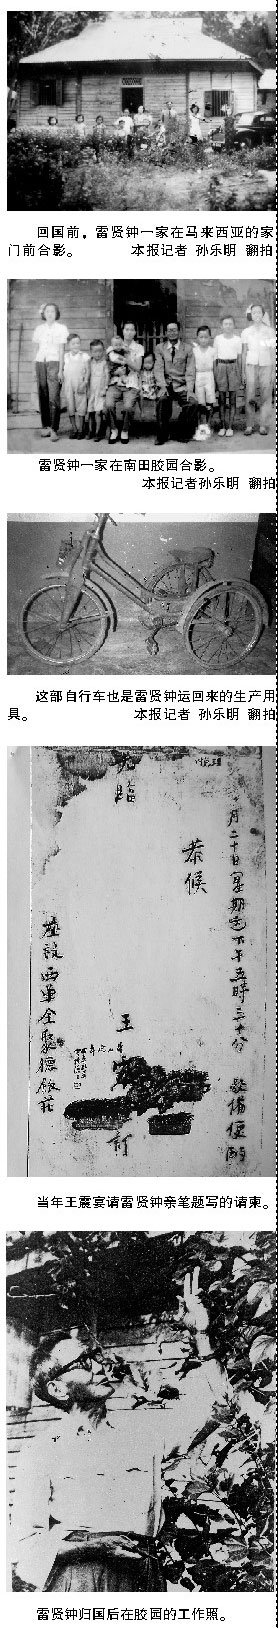 回国前，雷贤钟一家在马来西亚的家
门前合影。 本报记者 孙乐明 翻拍
雷贤钟一家在南田胶园合影。
本报记者孙乐明 翻拍
这部自行车也是雷贤钟运回来的生产用
具。 本报记者 孙乐明 翻拍
月二十日(星期 )下午五時三十分 敬備便酌
恭候
光臨
王 訂
席設西單全聚德飯莊
当年王震宴请雷贤钟亲笔题写的请柬。
雷贤钟归国后在胶园的工作照。